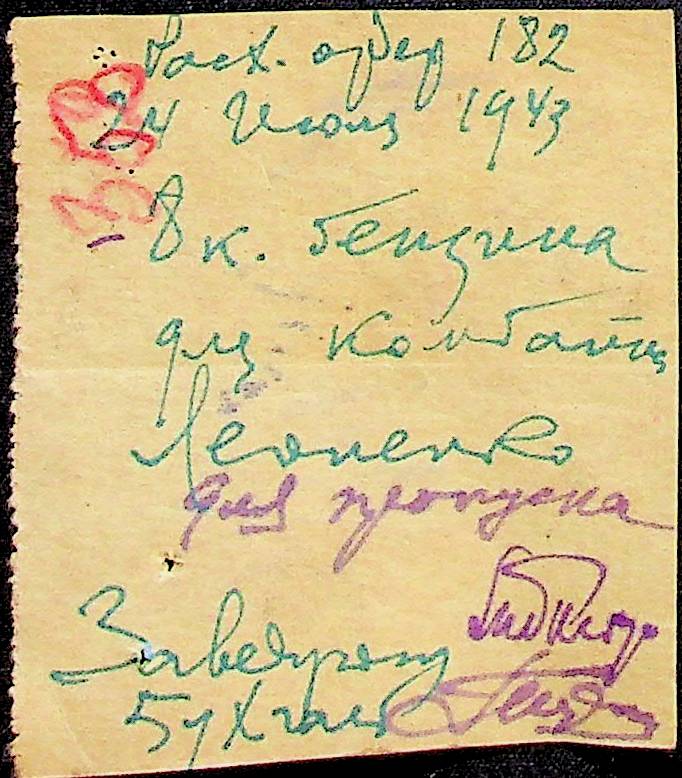 Расх. ордер 182
24 Июля 1943
8 к. бензина
для комбайн
Леоненко
для пропуска
Заведующ
Бухгалт